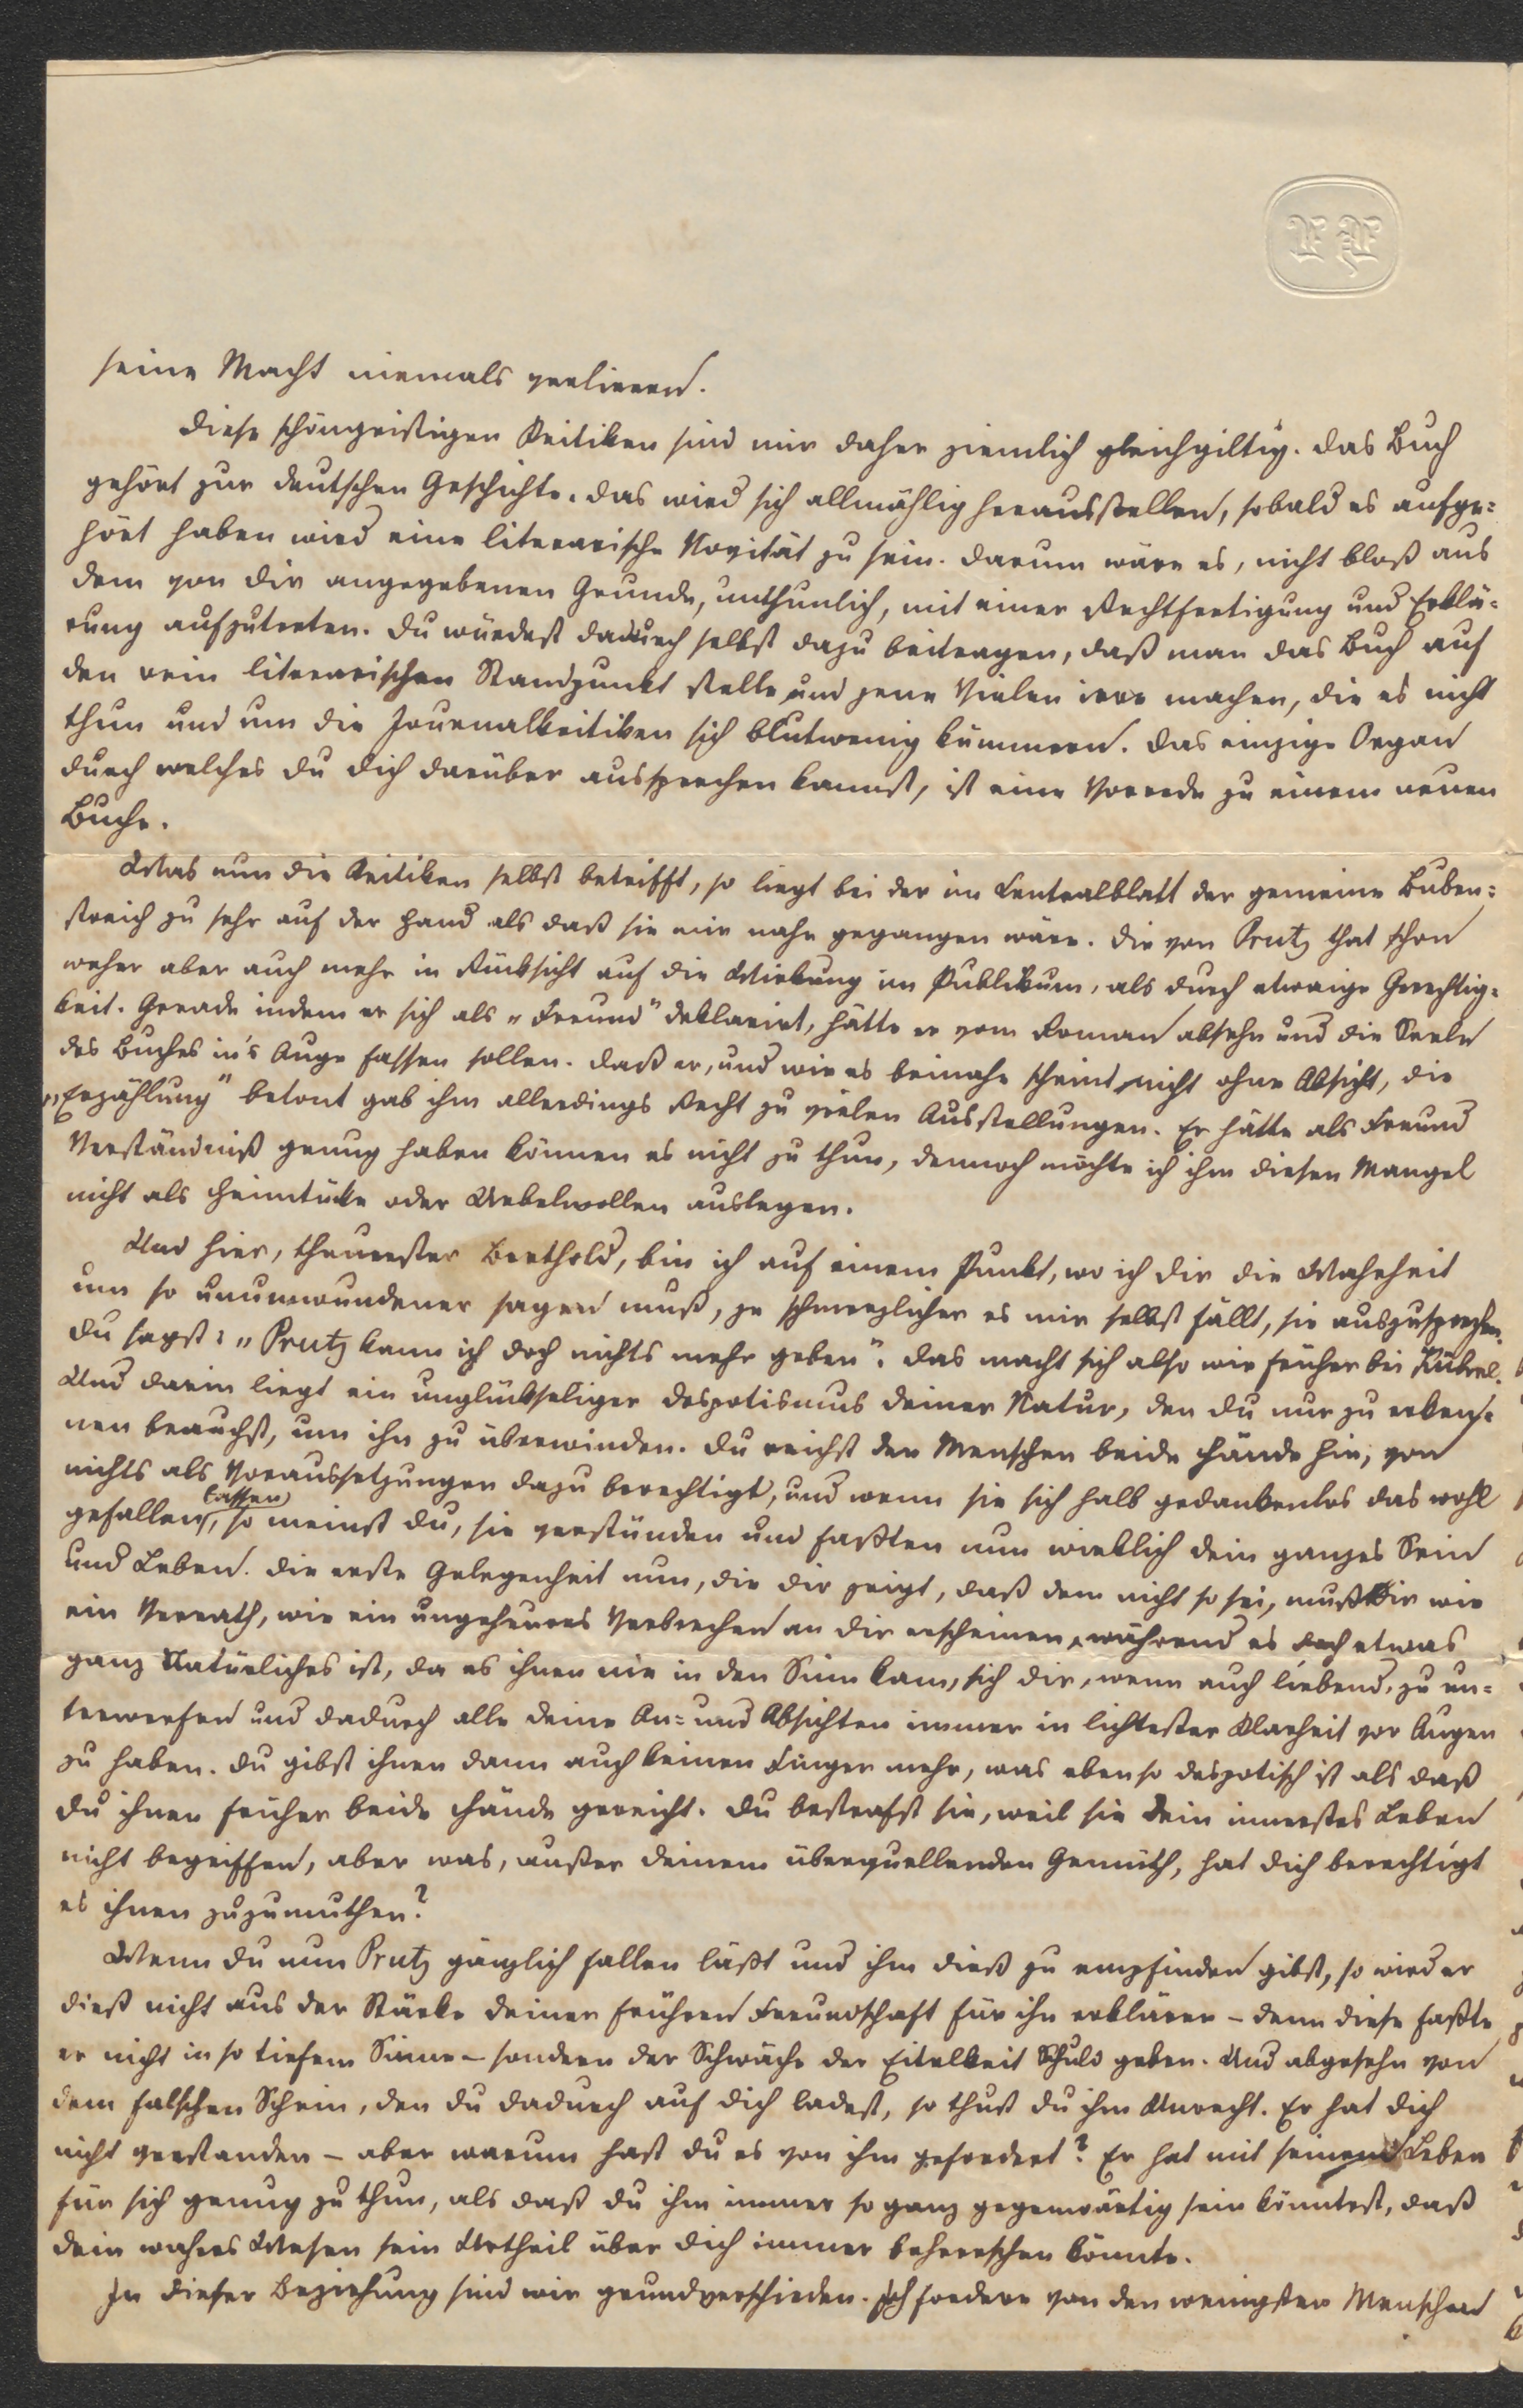 seine Macht niemals verlieren.
Diese schöngeistigen Kritiken sind mir daher ziemlich gleichgiltig. Das Buch
gehört zur deutschen Geschichte. Das wird sich allmählig herausstellen, sobald es aufge-
hört haben wird eine literarische Novität zu sein. Darum wäre es, nicht bloß aus
dem von dir angegebenen Grunde, unthunlich, mit einer Rechtfertigung und Erklä-
rung aufzutreten. Du würdest dadurch selbst dazu beitragen, daß man das Buch auf
den rein literarischen Standpunkt stelle und jene Vielen irre machen, die es nicht
thun und um die Journalkritiken sich blutwenig kümmern. Das einzige Organ
durch welches du dich darüber aussprechen kannst, ist eine Vorrede zu einem neuen
Buche.
Was nun die Kritiken selbst betrifft, so liegt bei der im Centralblatt der gemeine Buben-
streich zu sehr auf der Hand als daß sie mir nahe gegangen wäre. Die von Prutz that schon
weher aber auch mehr in Rücksicht auf die Wirkung im Publikum, als durch etwaige Gerechtig-
keit. Gerade indem er sich als „Freund" deklarirt, hätte er vom Roman absehn und die Seele
des Buches in's Auge fassen sollen. Daß er, und wie es beinahe scheint, nicht ohne Absicht, die
„Erzählung" betont gab ihm allerdings Recht zu vielen Ausstellungen. Er hätte als Freund
Verständniß genug haben können es nicht zu thun, dennoch möchte ich ihm diesen Mangel
nicht als Heimtücke oder Uebelwollen auslegen.
Und hier, theuerster Berthold, bin ich auf einem Punkt, wo ich dir die Wahrheit
um so unumwundener sagen muß, je schmerzlicher es mir selbst fällt, sie auszusprechen.
Du sagst: „Prutz kann ich doch nichts mehr geben". Das macht sich also wie früher bei
Und darin liegt ein unglückseliger Despotismus deiner Natur, den du nur zu erken-
nen brauchst, um ihn zu überwinden. Du reichst den Menschen beide Hände hin, von
nichts als Voraussetzungen dazu berechtigt, und wenn sie sich halb gedankenlos das wohl
gefallen lassen, so meinst du, sie verstünden und faßten nun wirklich dein ganzes Sein
und Leben. Die erste Gelegenheit nun, die dir zeigt, daß dem nicht so sei, muß dir wie
ein Verrath, wie ein ungeheures Verbrechen an dir erscheinen, während es doch etwas
ganz Natürliches ist, da es ihnen nie in den Sinn kam, sich dir, wenn auch liebend, zu un-
terwerfen und dadurch alle deine An- und Absichten immer in lichtester Klarheit vor Augen
zu haben. Du gibst ihnen dann auch keinen Finger mehr, was ebenso despotisch ist als daß
du ihnen früher beide Hände gereicht. Du bestrafst sie, weil sie dein innerstes Leben
nicht begriffen, aber was, außer deinem überquellenden Gemüth, hat dich berechtigt
es ihnen zuzumuthen?
Wenn du nun Prutz gänzlich fallen läßt und ihm dieß zu empfinden gibst, so wird er
dieß nicht aus der Stärke deiner frühren Freundschaft für ihn erklären – denn diese faßte
er nicht in so tiefem Sinne – sondern der Schwäche der Eitelkeit Schuld geben. Und abgesehn von
dem falschen Schein, den du dadurch auf dich ladest, so thust du ihm Unrecht. Er hat dich
nicht verstanden – aber warum hast du es von ihm gefordert? Er hat mit seinem Leben
für sich genug zu thun, als daß du ihm immer so ganz gegenwärtig sein könntest, daß
dein wahres Wesen sein Urtheil über dich immer beherrschen könnte.
In dieser Beziehung sind wir grundverschieden. Ich fordere von den wenigsten Menschen